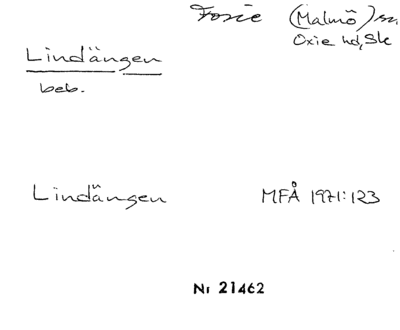 Fosie (Malmö) sn
Oxie hd, Sk
Lindängen
beb.
Lindängen MFÅ 1971:123
Nr 21462